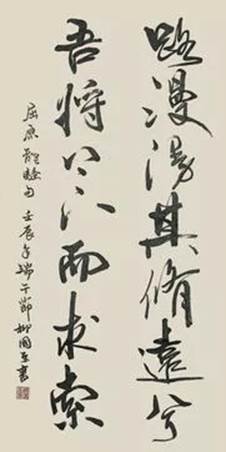 路漫漫其修远兮
吾将上下而求索
屈原离骚句 壬辰年端午节柳国正书